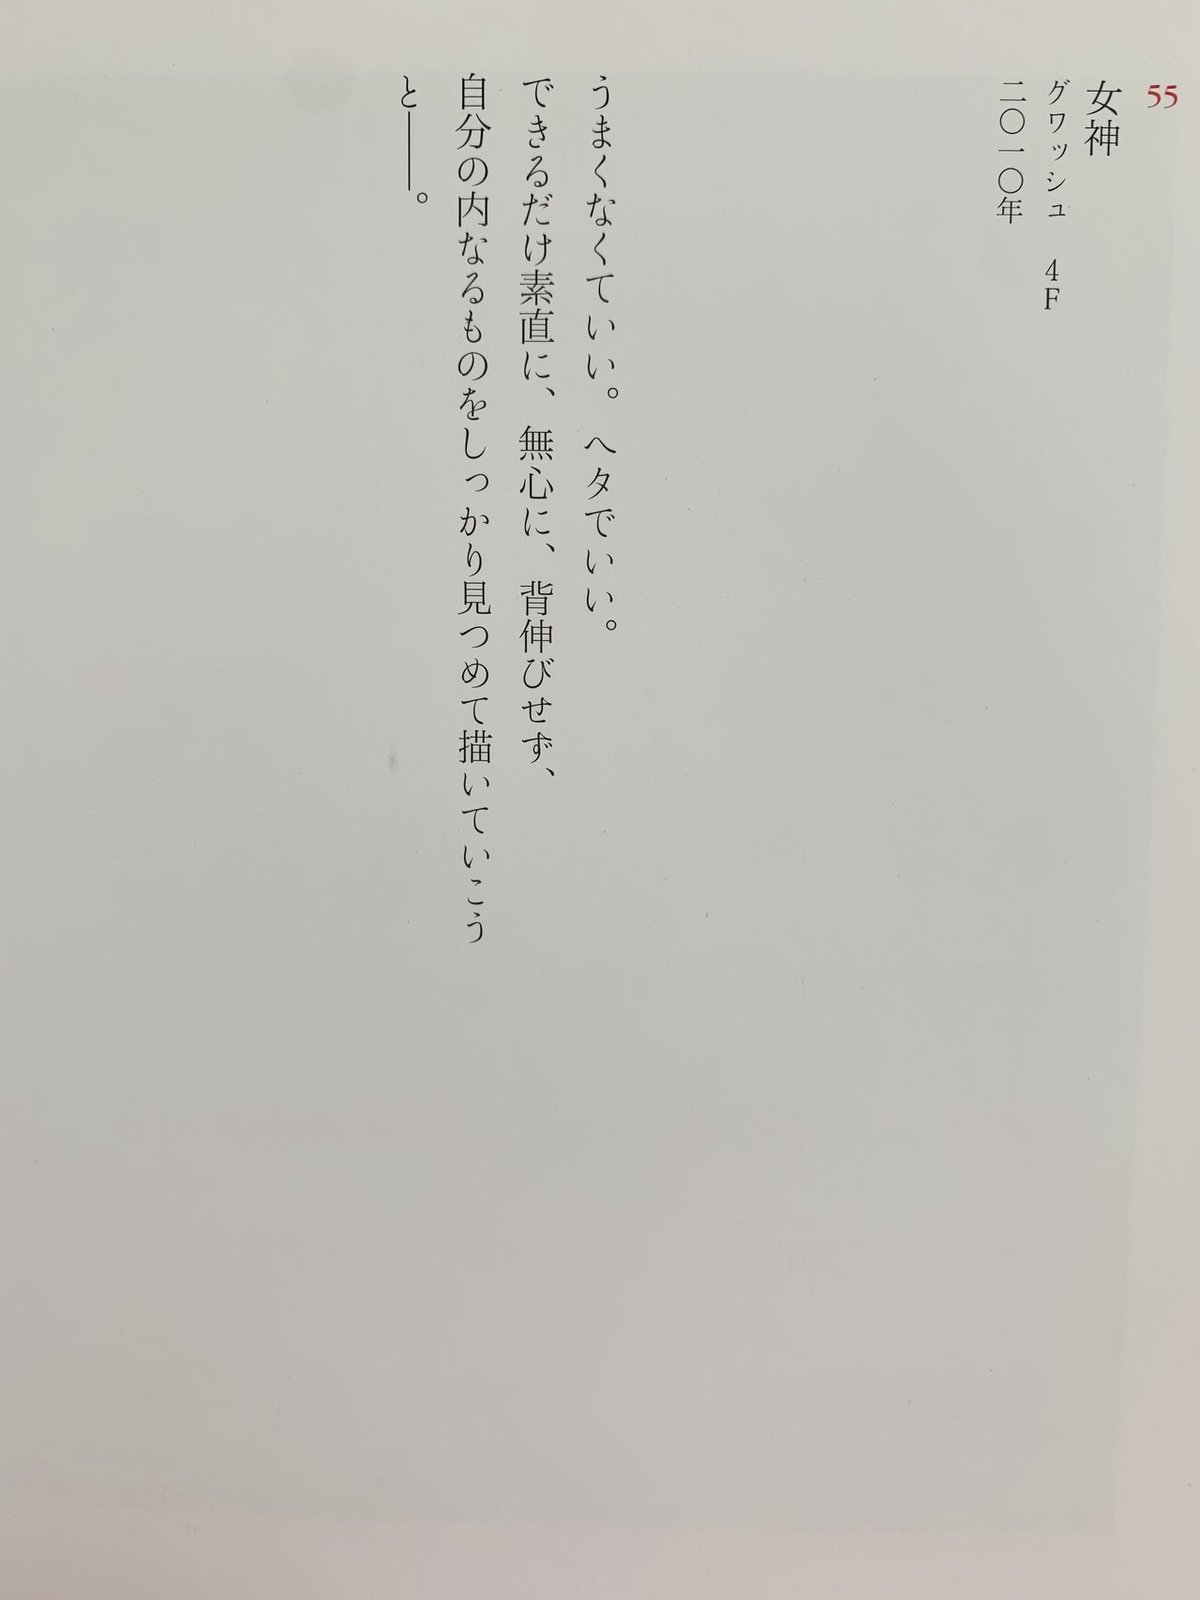 55
女神
グワッシュ　4F
二〇一〇年
うまくなくていい。ヘタでいい。
できるだけ素直に、無心に、背伸びせず、
自分の内なるものをしっかり見つめて描いていこう
と――。